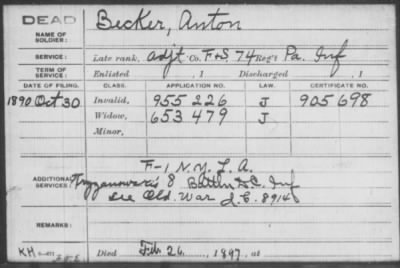 DEAD
NAME OF SOLDIER: Becker, Anton
SERVICE: Late rank, Adjt Co. F+S 74 Reg't Pa. Inf
TERM OF SERVICE: Enlisted , 1 Discharged , 1
DATE OF FILING. CLASS. APPLICATION NO. LAW. CERTIFICATE NO.
1890 Oct 30 Invalid, 955 226 J 905 698
Widow, 653 479 J
Minor,
F-1 N.Y. L.A.
ADDITIONAL SERVICES: 8 Battn D.C. Inf
see Old. War 8914
REMARKS:
KH
Died Feb. 26, 1897, at